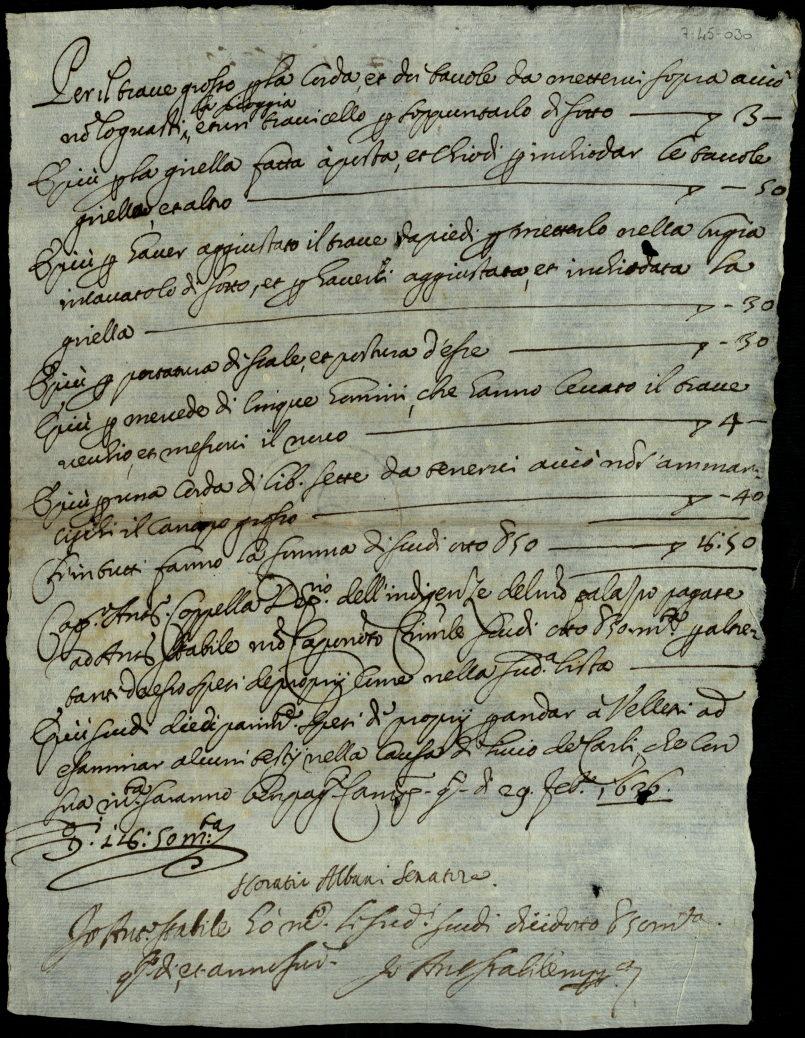 7-45-030
Per il trave grosso p la Corda, et doi tavole da mettervi sopra acciò
nō lo guasti la pioggia, et un travicello p soppuntarlo di sotto — 3 —
E più p la girella fatta à posta, et chiodi p inchiodar le tavole
girella, et altro — 50
E più p haver aggiustato il trave da piedi p metterlo nella
incavatolo di sotto, et p haverli aggiustata, et inchiodata la
girella — 30
E più p portatura di scale, et portura d'esse — 30
E più p mercede di Cinque homini, che hanno levato il trave
vecchio, et messovi il novo — 4 —
E più p una Corda di lib. sette da tenervi acciò nō s'ammar-
cischi il Canapo grosso — 40
Ch'in tutti fanno la somma di scudi otto 50 — 50
Antº Coppella dell' pagate
ad Antº Stabile nrō scudi otto 50 mtª p altre-
tanti da esso spesi de proprij Come nella sudª lista
E più scudi dieci parimte spesi de proprij p andar à Velletri ad
esaminar alcuni testij nella Causa di de Carli, che Con
sua saranno ben pagti. - di 29. feb. 1636.
50 mtª
Horatio Albani Senatore.
Io Antº Stabile hò li sudi scudi dieidotto 50 mtª.
di, et anno sudº Io Antº Stabile mpp